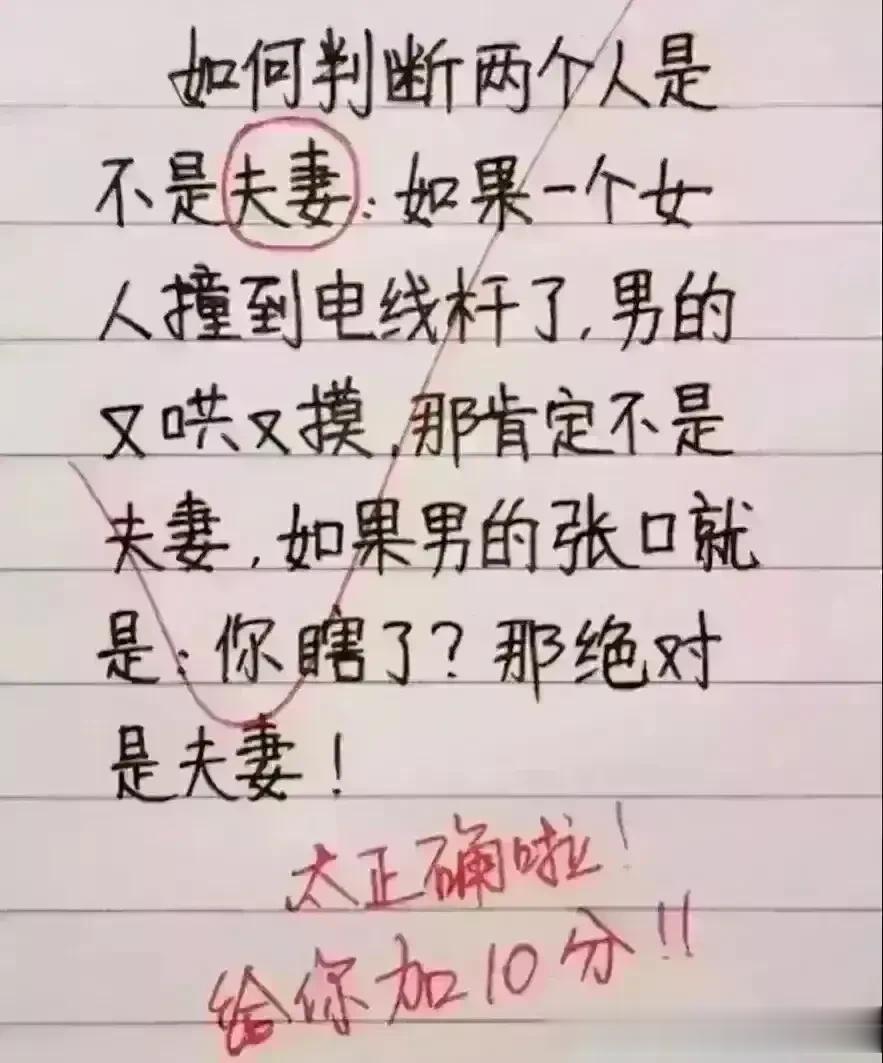 如何判断两个人是
不是夫妻:如果一个女
人撞到电线杆了,男的
又哄又摸,那肯定不是
夫妻,如果男的张口就
是:你瞎了?那绝对
是夫妻!
太正确啦!
给你加10分!!